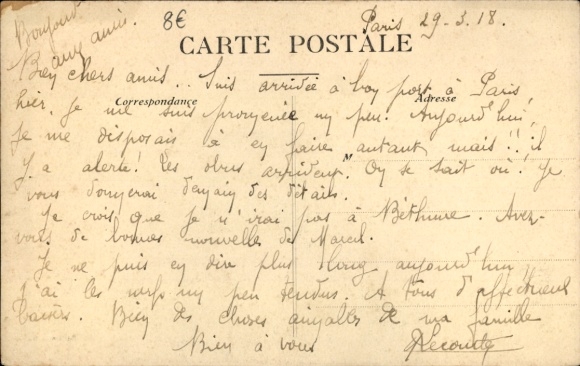 Bonjour
aux amis.
8€
Paris 29-3.18.
CARTE POSTALE
Bien chers amis.. Suis arrivée à bon port à Paris
hier. Je me suis promenée un peu. Aujourd'hui
Correspondance
Adresse
Je me disposais à en faire autant mais!! il
y a alerte! Les obus arrivent. On se sait où! Je
M
vous donnerai demain des détails.
Je crois que je n'irai pas à Béthune. Avez-
vous de bonnes nouvelles de Marcel.
Je ne puis en dire plus long aujourd'hui
j'ai les nerfs un peu tendus. A tous d'affectueux
baisers. Bien des choses aimables de ma famille
Bien à vous Lecomte